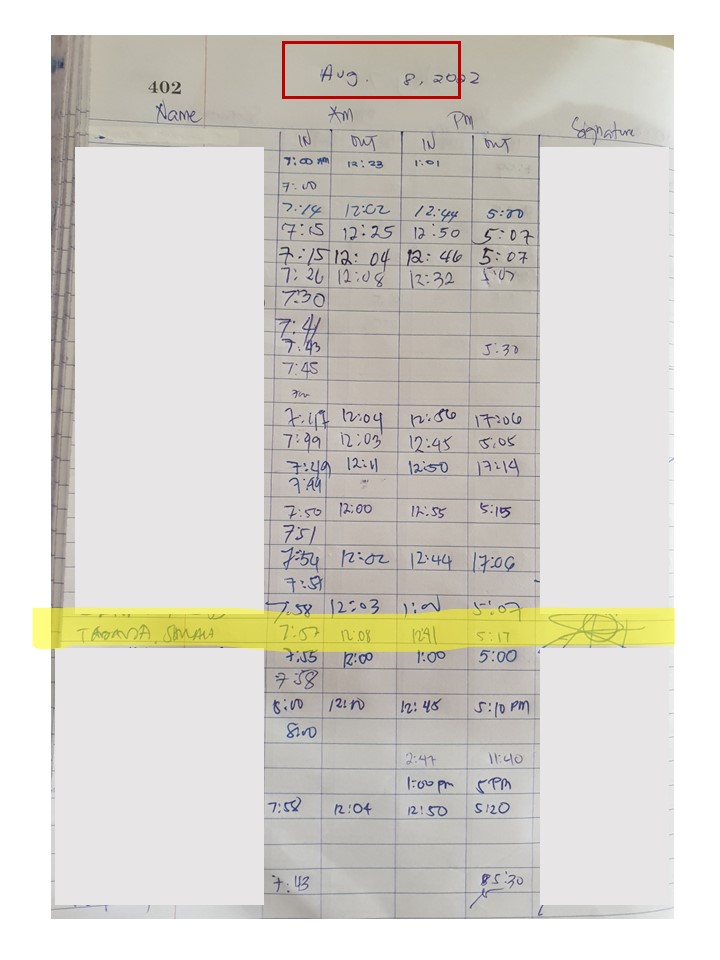 Aug. 8, 2022
402
Name AM PM Signature
IN OUT IN OUT
7:00 AM 12:23 1:01
7:00
7:14 12:02 12:44 5:00
7:15 12:25 12:50 5:07
7:15 12:04 12:46 5:07
7:26 12:08 12:32 5:07
7:30
7:41
7:43 5:30
7:45
7:47 12:04 12:56 17:06
7:49 12:03 12:45 5:05
7:49 12:11 12:50 17:14
7:49
7:50 12:00 12:55 5:15
7:51
7:54 12:02 12:44 17:06
7:57
7:58 12:03 5:07
7:57 12:08 12:41 5:17
7:55 12:00 1:00 5:00
7:58
8:00 12:10 12:45 5:10 PM
8:00
2:47 11:40
1:00 pm 5 PM
7:58 12:04 12:50 5:20
7:43 5:30